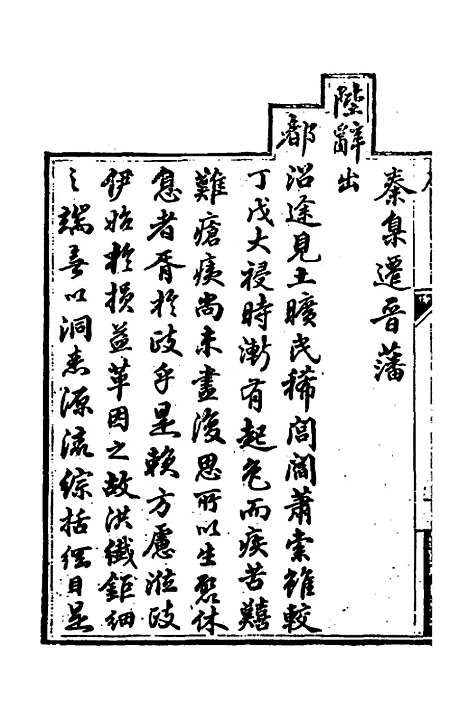 秦臬遷晉藩
陛辭出
都沿途見土曠民稀閭閻蕭索雖較
丁戊大祲時漸有起色而疾苦艱
難瘡痍尚未盡復思所以生聚休
息者胥於政乎是賴方慮涖政
伊始於損益革因之故洪纖鉅細
之端無以洞悉源流綜括綱目是